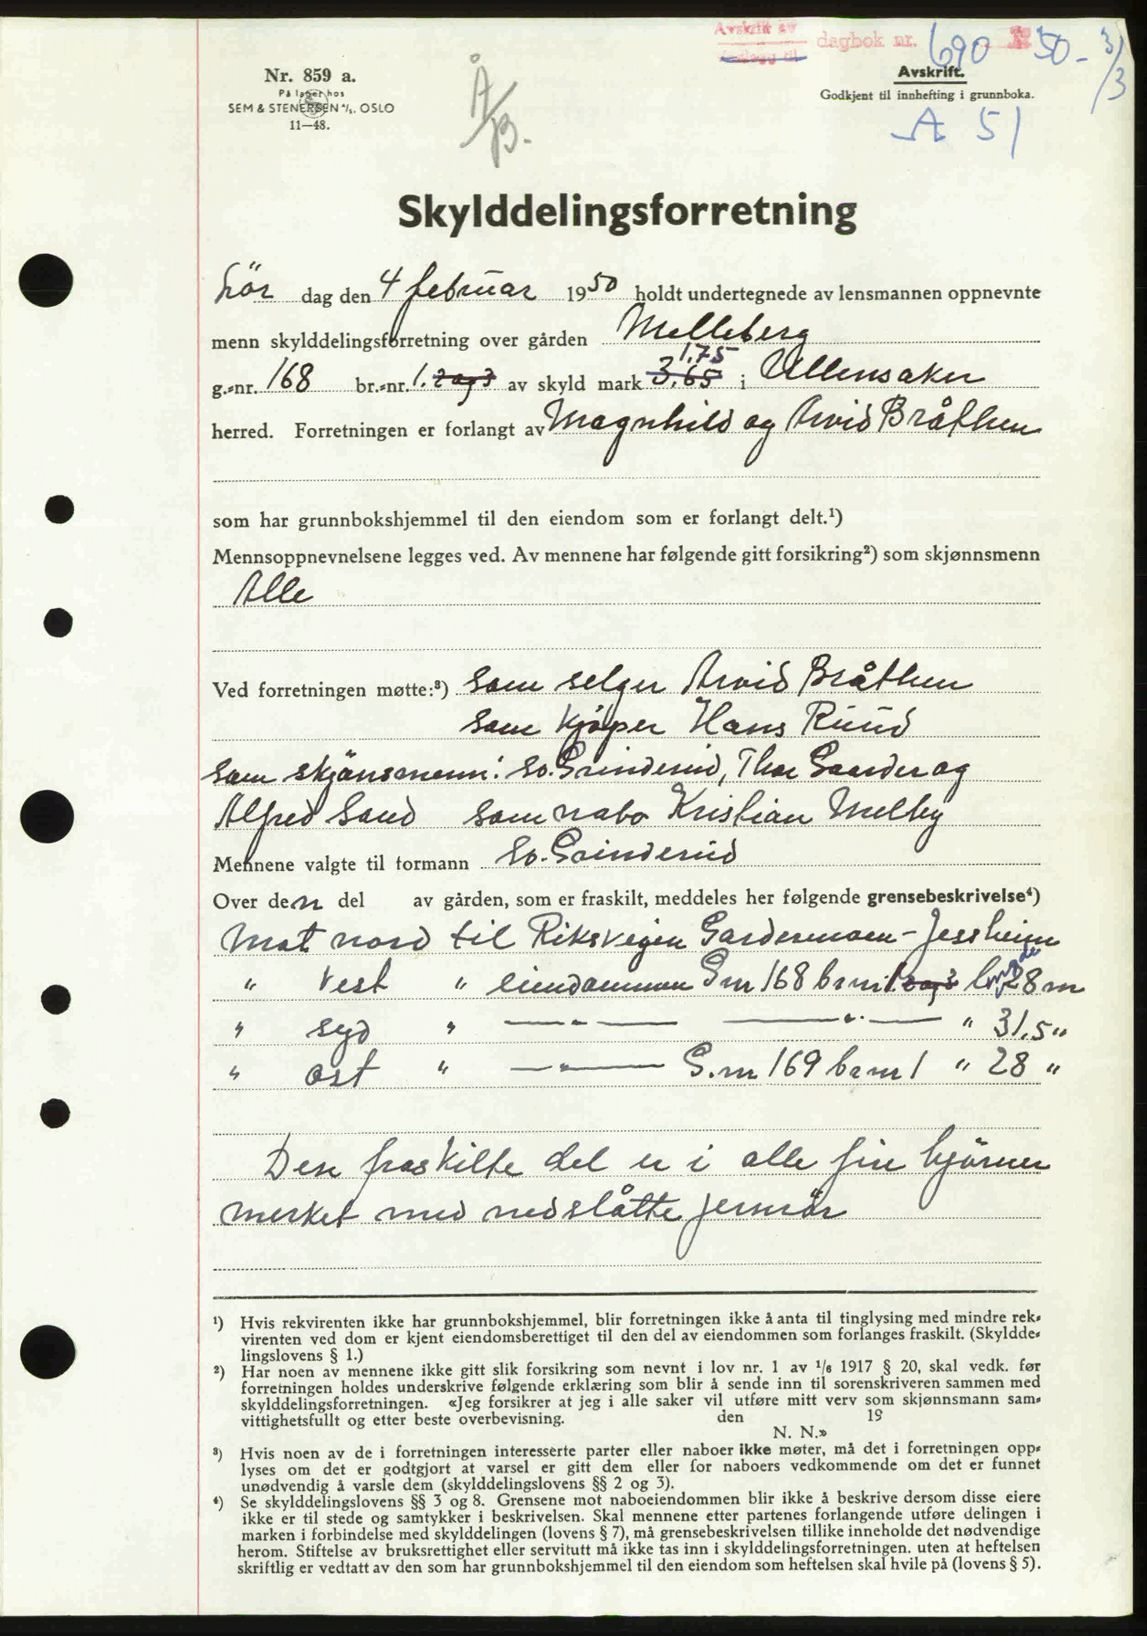 Avskrift av dagbok nr. 690 50 - 3/3
Nr. 859 a.
På lager hos
SEM & STENERSEN A/S. OSLO
11—48.
Å/B.
Avskrift.
Godkjent til innhefting i grunnboka.
A 51
Skylddelingsforretning
Lör dag den 4 februar 1950 holdt undertegnede av lensmannen oppnevnte
menn skylddelingsforretning over gården Melleberg
1,75
g.-nr. 168 br.-nr. 1. 2 og 3 av skyld mark 3,65 i Ullensaker
herred. Forretningen er forlangt av Magnhild og Arvid Bråthen
som har grunnbokshjemmel til den eiendom som er forlangt delt.¹)
Mennsoppnevnelsene legges ved. Av mennene har følgende gitt forsikring²) som skjønnsmenn
Alle
Ved forretningen møtte:³) Som selger Arvid Bråthen
Som kjöper Hans Ruud
Som skjönsmenn: So. Grinderud, Thor Gaarder og
Alfred Sand Som nabo Kristian Melby
Mennene valgte til formann So. Grinderud
Over den del av gården, som er fraskilt, meddeles her følgende grensebeskrivelse⁴)
Mot nord til Riksvegen Gardermoen - Jessheim
" Vest " eiendommen G nr 168 br nr 1 2 og 3 lengde 28 m
" syd " — " — — " — " 31,5 "
" ost " — " — G. nr 169 br nr 1 " 28 "
Den fraskilte del er i alle fire hjörner
merket med nedslåtte jernrör
¹) Hvis rekvirenten ikke har grunnbokshjemmel, blir forretningen ikke å anta til tinglysing med mindre rek-
virenten ved dom er kjent eiendomsberettiget til den del av eiendommen som forlanges fraskilt. (Skyldde-
lingslovens § 1.)
²) Har noen av mennene ikke gitt slik forsikring som nevnt i lov nr. 1 av 1/6 1917 § 20, skal vedk. før
forretningen holdes underskrive følgende erklæring som blir å sende inn til sorenskriveren sammen med
skylddelingsforretningen. «Jeg forsikrer at jeg i alle saker vil utføre mitt verv som skjønnsmann sam-
vittighetsfullt og etter beste overbevisning. den 19
N. N.»
³) Hvis noen av de i forretningen interesserte parter eller naboer ikke møter, må det i forretningen opp-
lyses om det er godtgjort at varsel er gitt dem eller for naboers vedkommende om det er funnet
unødvendig å varsle dem (skylddelingslovens §§ 2 og 3).
⁴) Se skylddelingslovens §§ 3 og 8. Grensene mot naboeiendommen blir ikke å beskrive dersom disse eiere
ikke er til stede og samtykker i beskrivelsen. Skal mennene etter partenes forlangende utføre delingen i
marken i forbindelse med skylddelingen (lovens § 7), må grensebeskrivelsen tillike inneholde det nødvendige
herom. Stiftelse av bruksrettighet eller servitutt må ikke tas inn i skylddelingsforretningen. uten at heftelsen
skriftlig er vedtatt av den som har grunnbokshjemmel til den eiendom som heftelsen skal hvile på (lovens § 5).